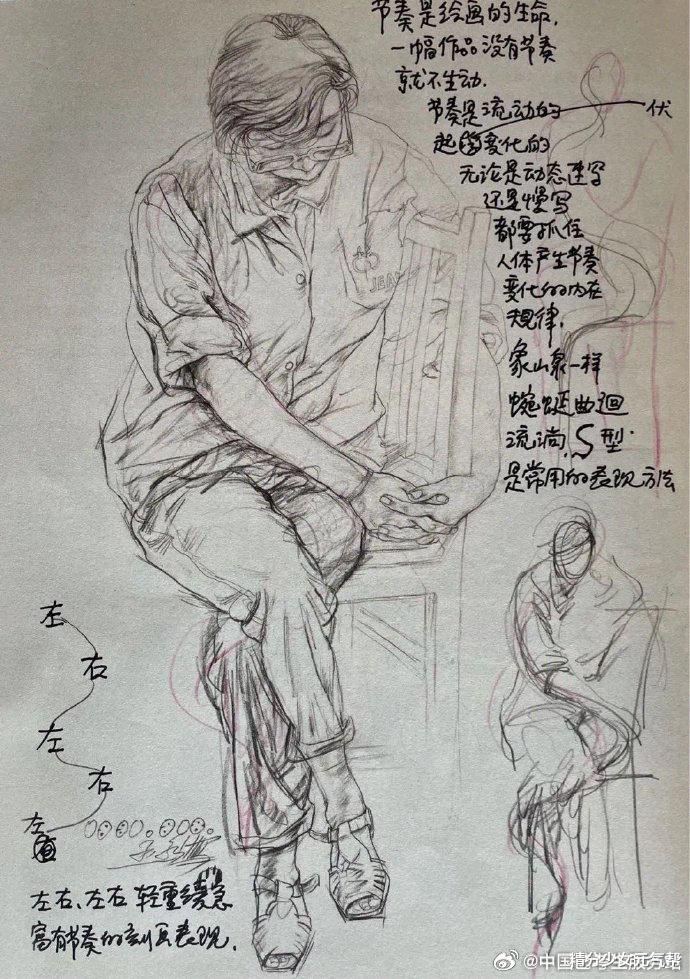 节奏是绘画的生命.
一幅作品没有节奏
就不生动.
节奏是流动的
伏
起变化的
无论是动态速写
还是慢写
都要抓住
人体产生节奏
变化的内在
规律.
象山泉一样
蜿蜒曲迴
流淌.S型
是常用的表现方法
JEAN
左
右
左
右
左
左右、左右 轻重缓急
富有节奏的刻画表现.
@中国